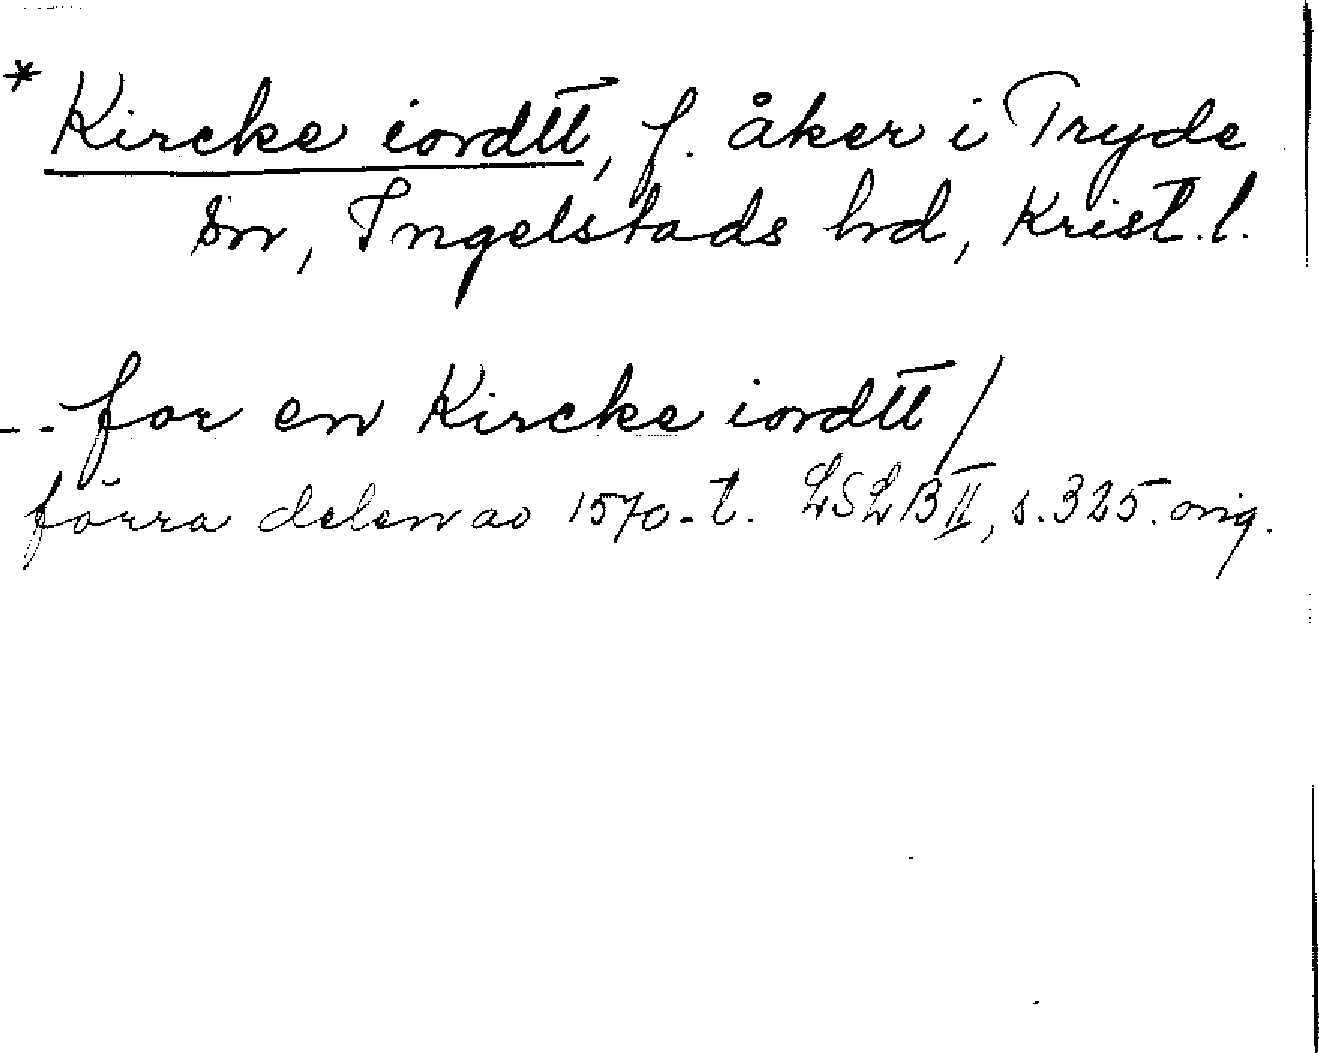 * Kircke iordtt, f. åker i Tryde
sn, Ingelstads hd, Krist. l.
-- for en Kircke iordtt/
förra delen av 1570-t. LSLB II, s. 325. orig.